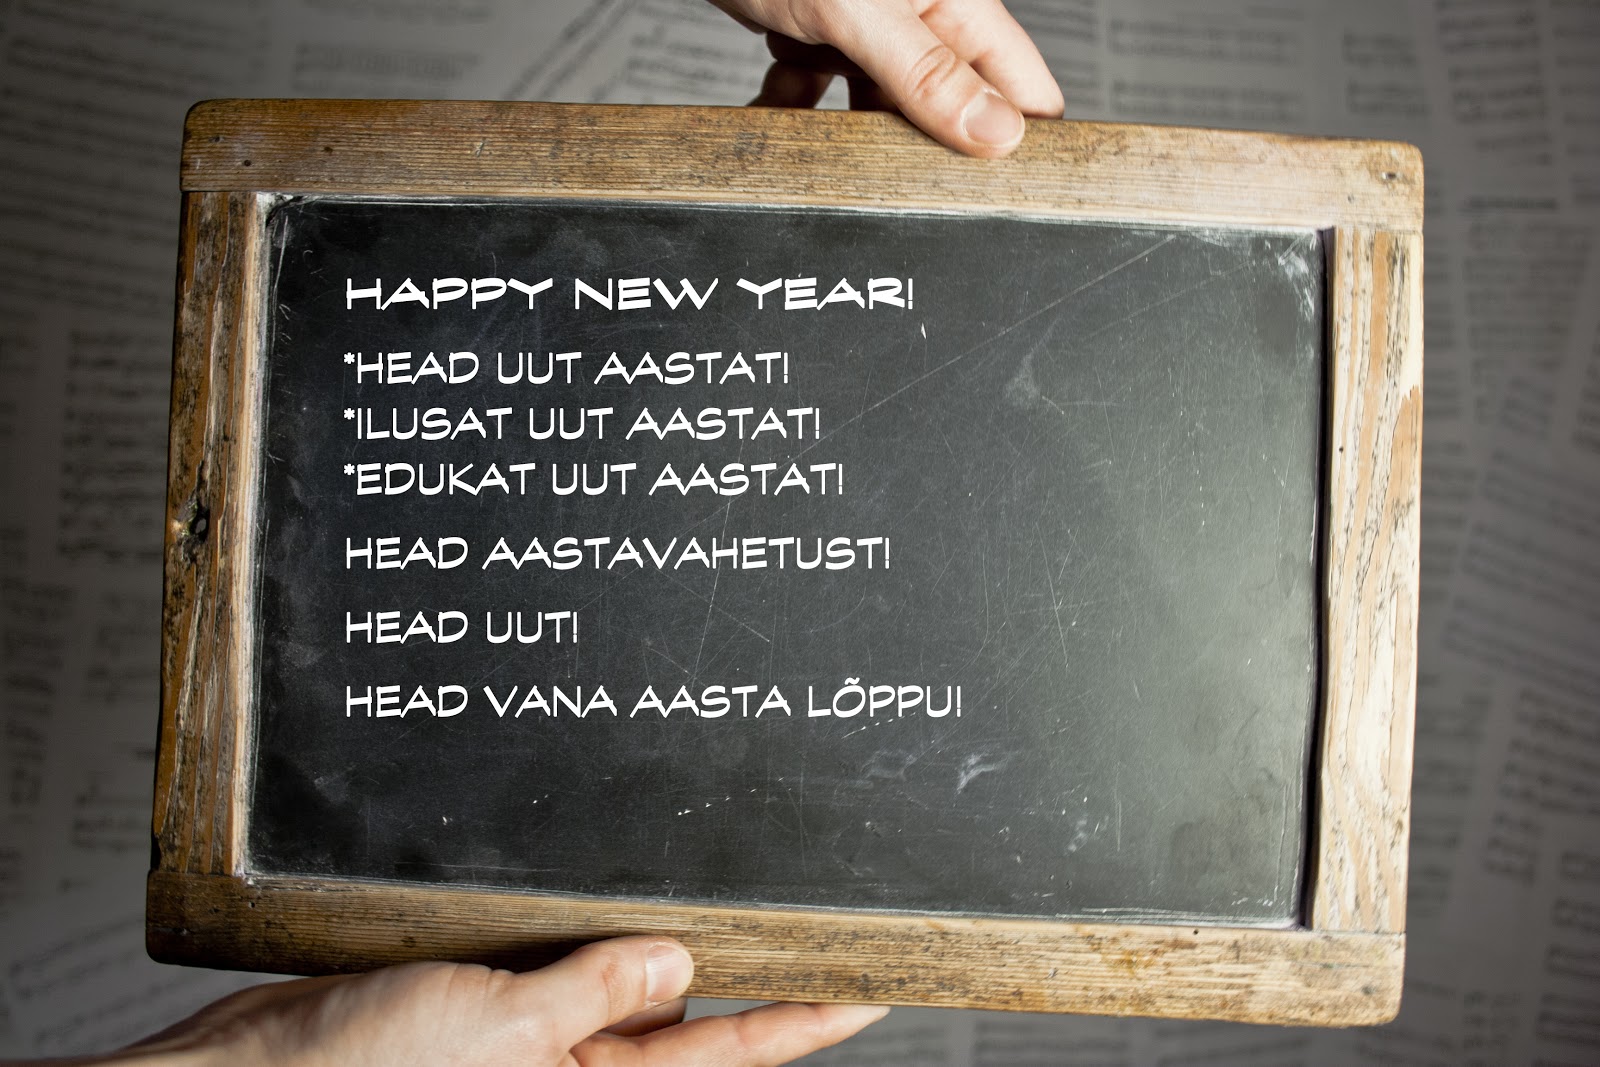 HAPPY NEW YEAR!
*HEAD UUT AASTAT!
*ILUSAT UUT AASTAT!
*EDUKAT UUT AASTAT!
HEAD AASTAVAHETUST!
HEAD UUT!
HEAD VANA AASTA LÕPPU!